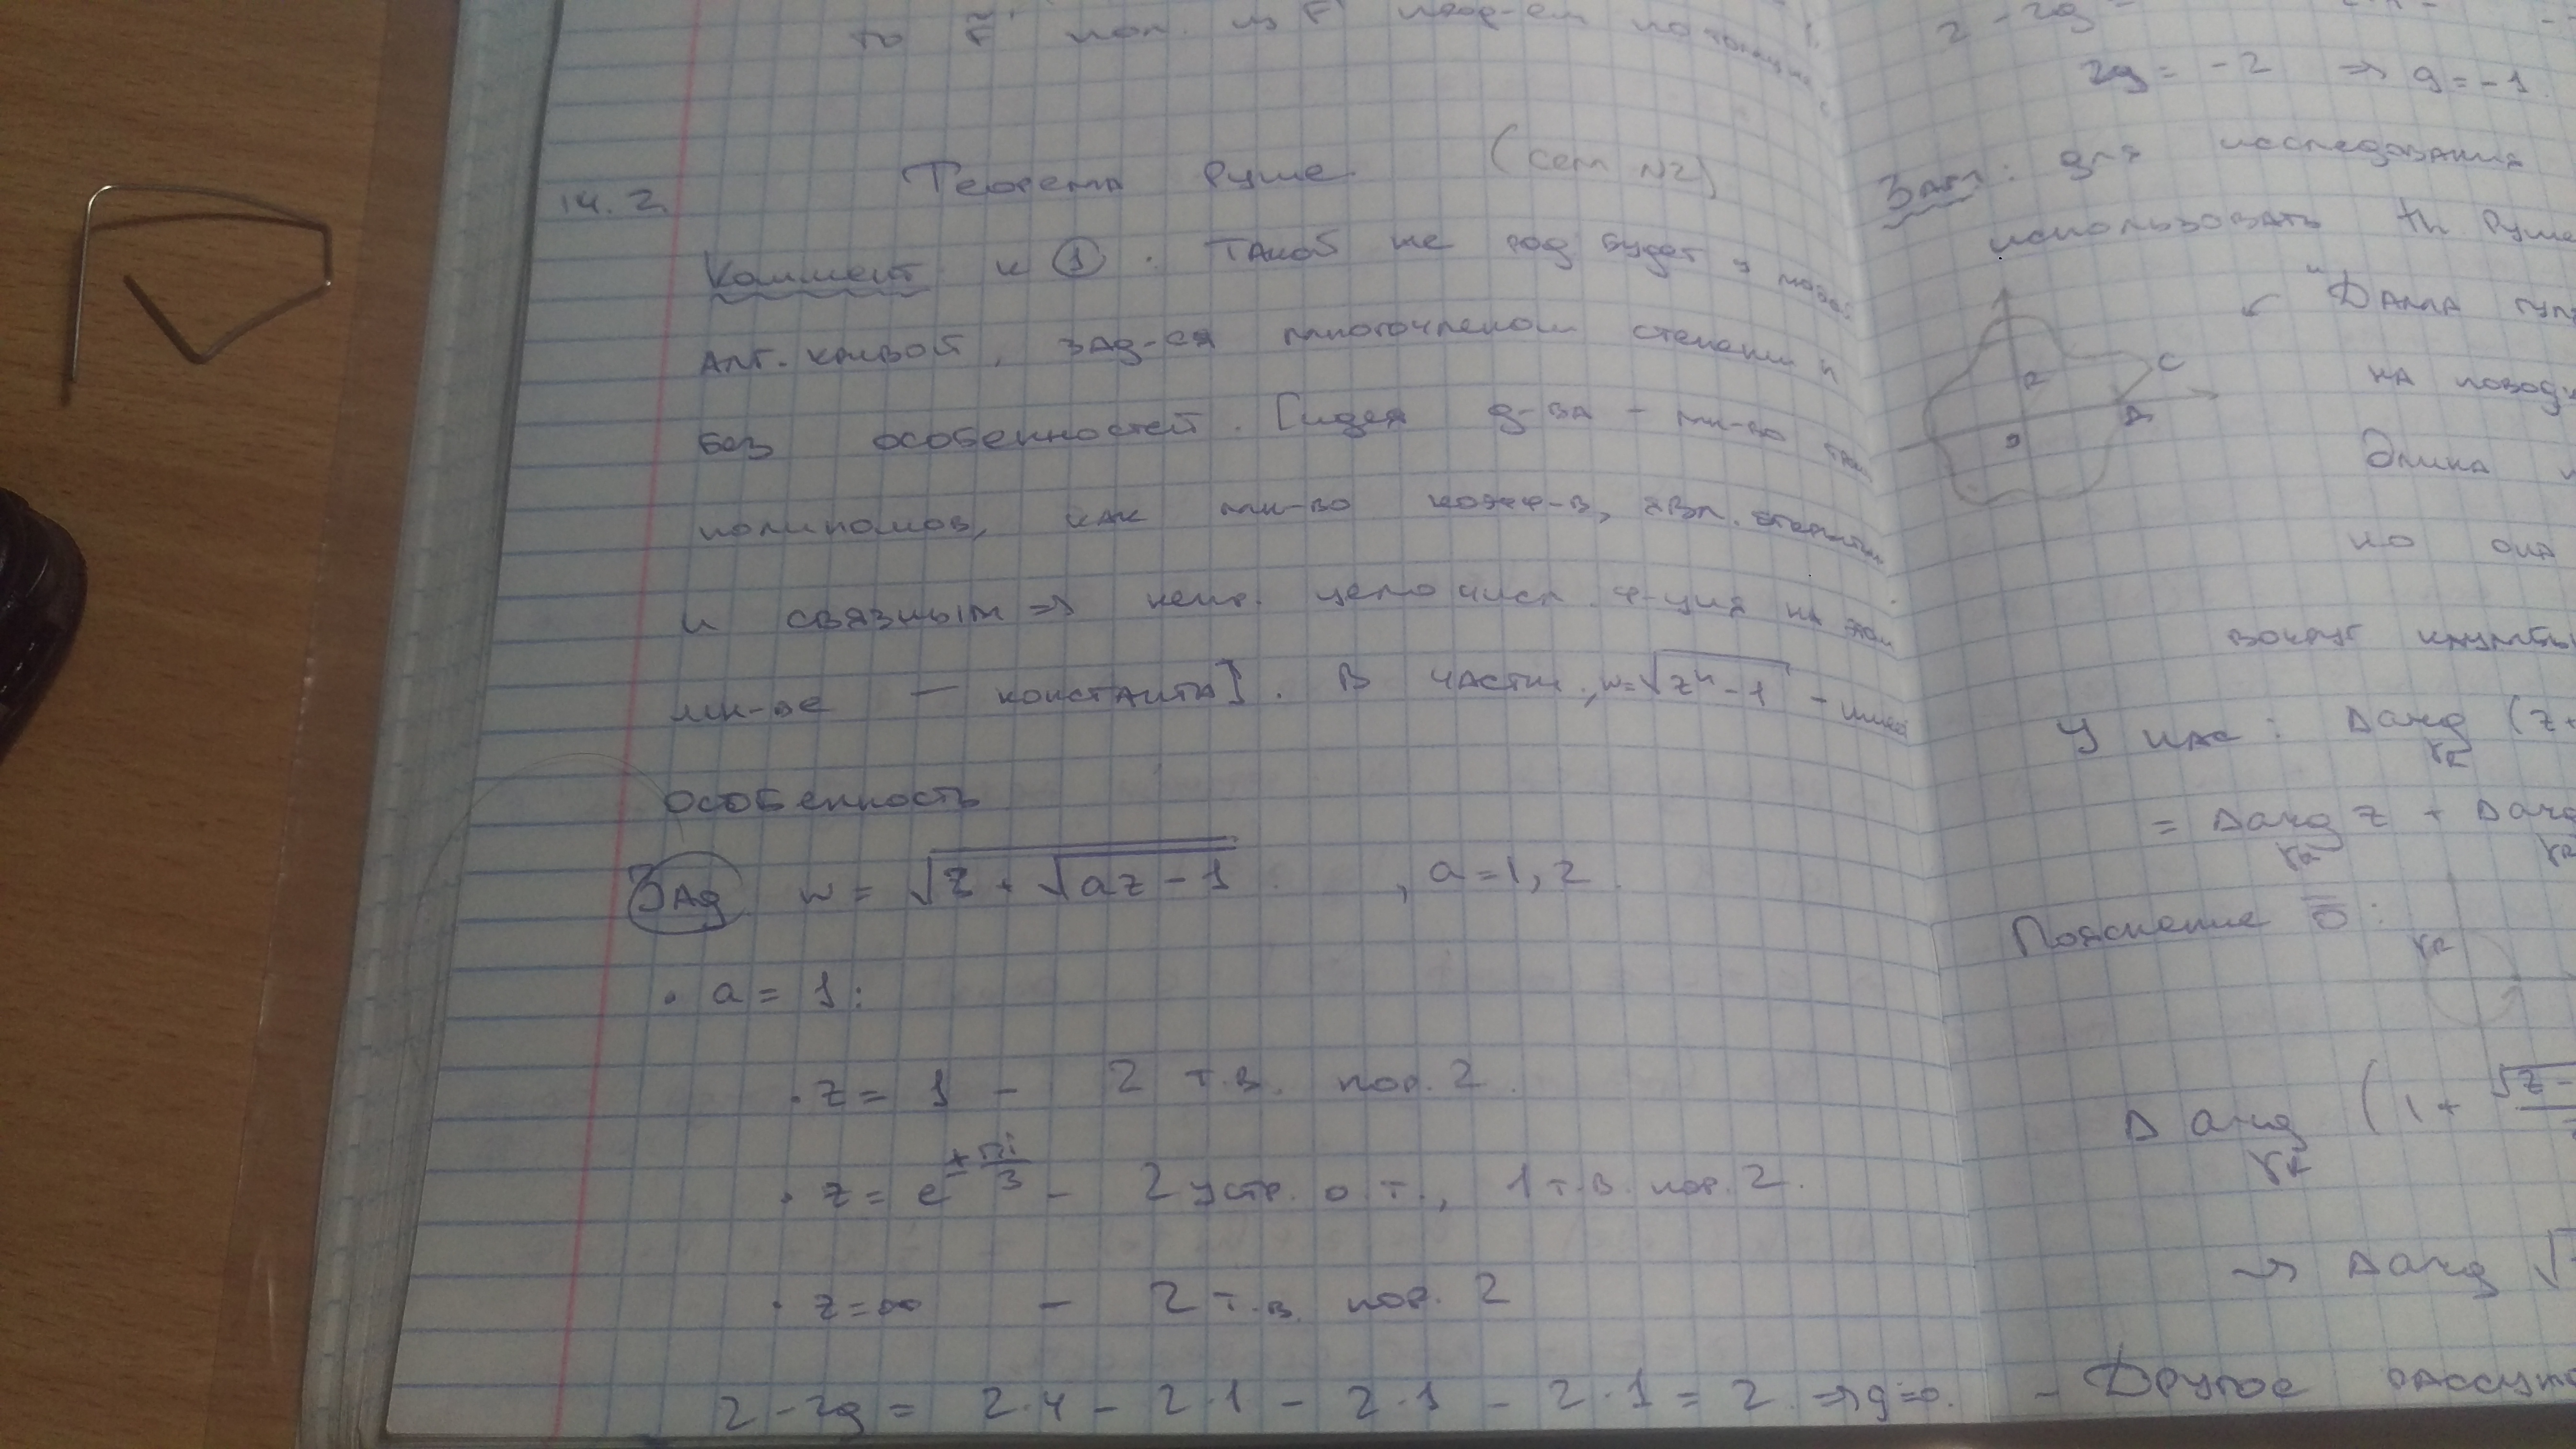 то F̃ пол. из F
14.2. Теорема Руше (сем N2)
Коммент к ① . Такой же род будет у
алг. кривой, зад-ся многочленом степени n
без особенностей. [идея д-ва – мн-во
полиномов, как мн-во коэфф-в, явл. открытым
и связным ⇒ непр. целочисл. ф-ция на этом
мн-ве — константа]. В частн., w=√(zⁿ-1) - имеет
особенность
Зад w = √(z + √(az - 1)) , a = 1, 2
· a = 1:
· z = 1 - 2 т.в. пор. 2.
· z = e^(±πi/3) - 2 устр. о.т., 1 т.в. пор. 2.
· z = ∞ - 2 т.в. пор. 2
2 - 2g = 2·4 - 2·1 - 2·1 - 2·1 = 2 ⇒ g=0.
2 - 2g =
2g = -2 ⇒ g = -1.
Зам: для исследования
использовать th Руше
"Дама
C
R
A
0
на повод
Длина
но она
вокруг клумбы
У нас: Δarg (z+
γR
= Δarg z + Δarg
γR γR
Пояснение 0̿ :
γR
Δ arg (1 + √z -
γR
⇒ Δarg √
- Другое